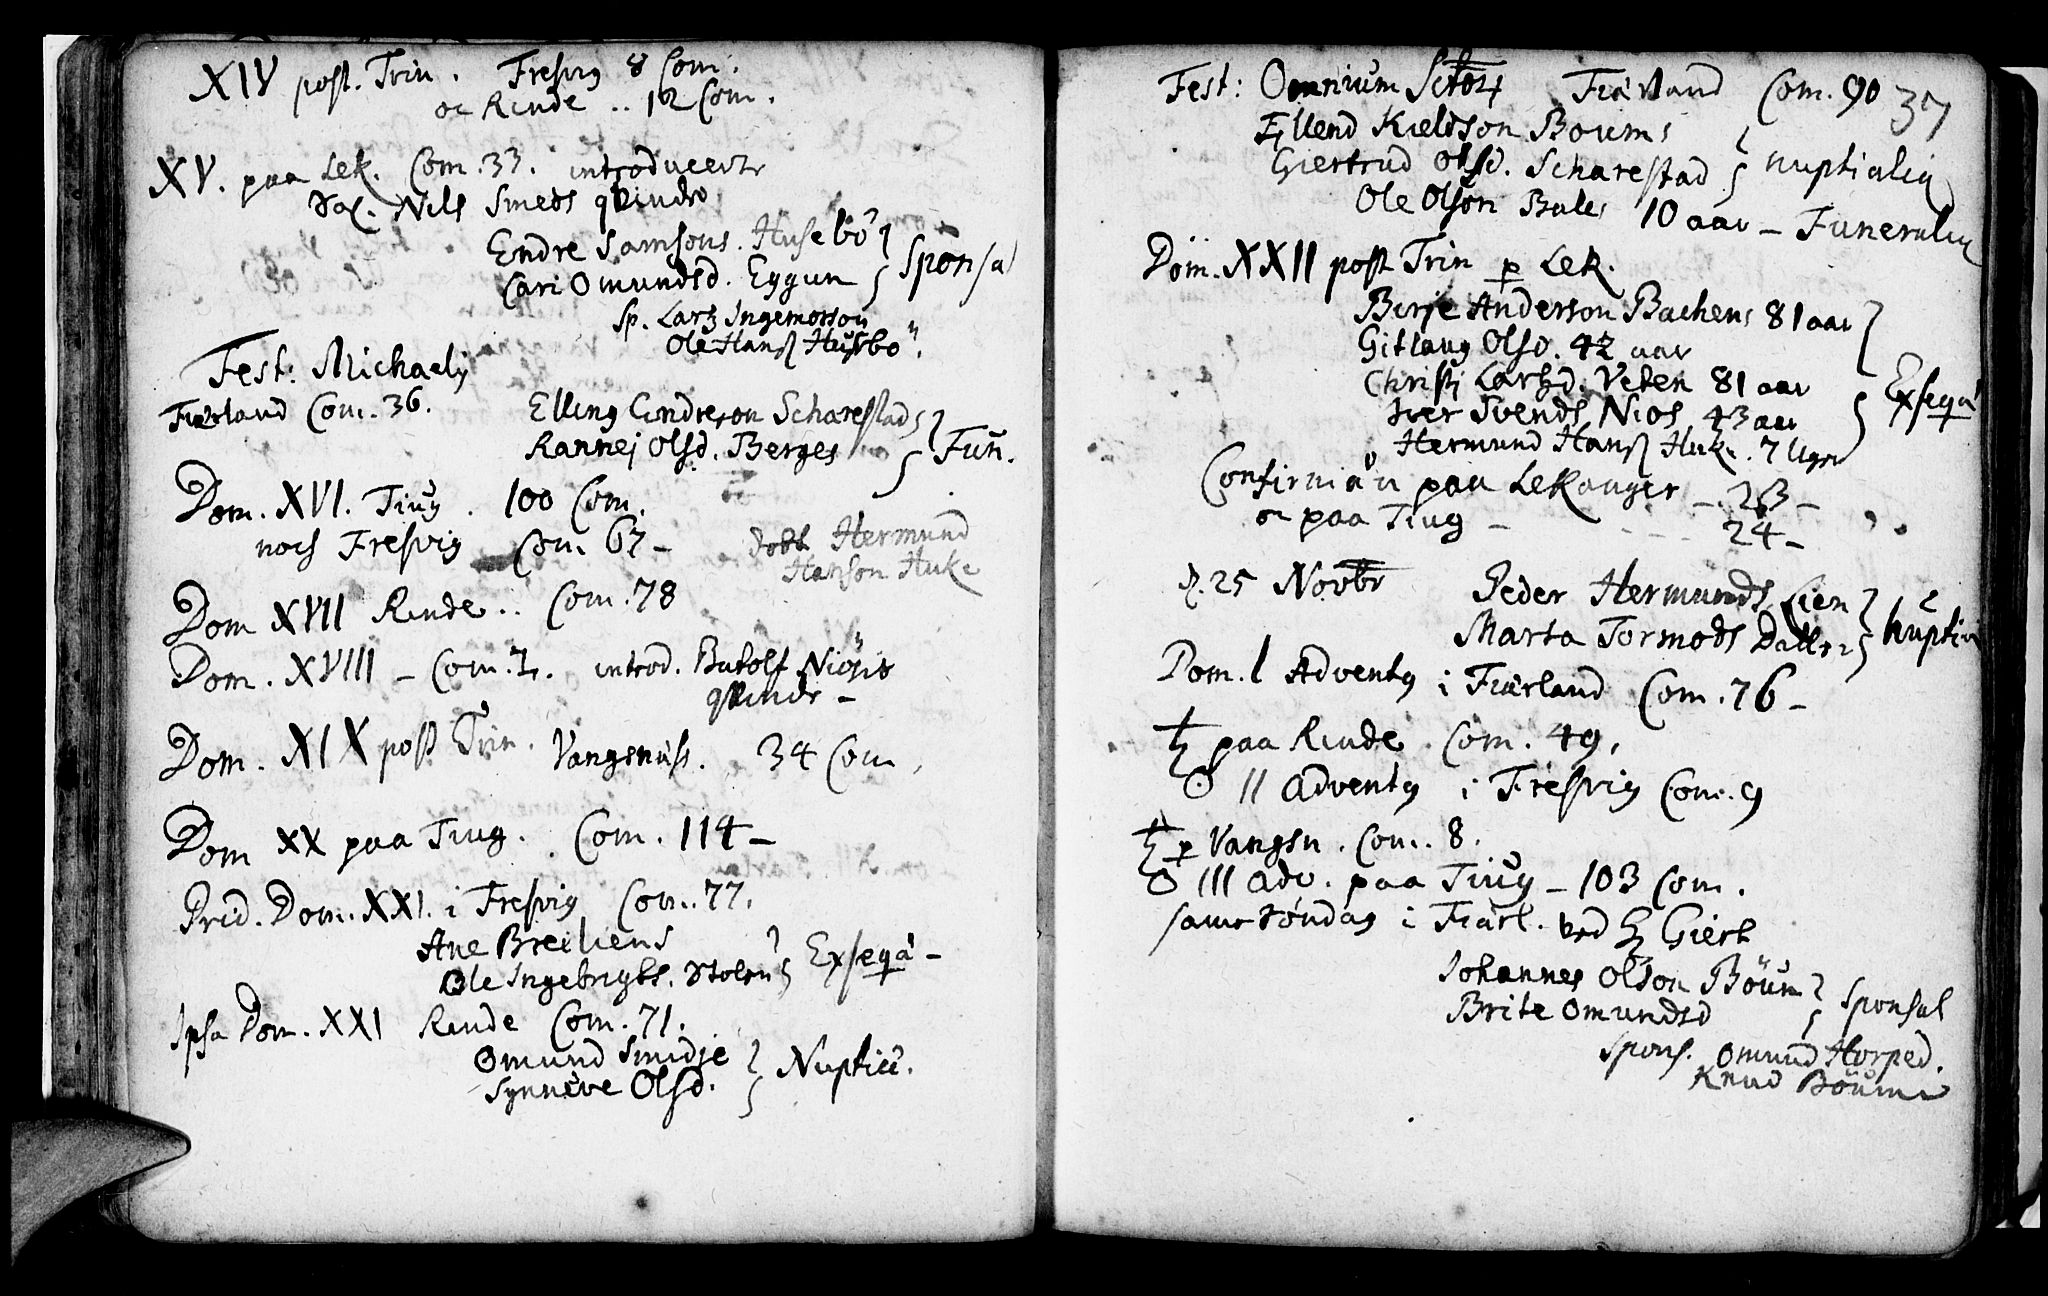 XIV post. Trin. Fresvig 8 Com.
oc Rinde .. 12 Com.
XV. paa Lek. Com. 33. introduceert
Nils Smeds qvinde
Endre Samsons. Husebö
Cari Omundsd. Eggum } Sponsal
Sp. Lars Ingemorson
Ole Hanss Husebö.
Fest: Michaelis
Fiærland Com. 36. Elling Endreson Scharestad
Rannei Olsd. Berges } Fun.
Dom. XVI. Tiug. 100 Com.
noch Fresvig Com 67 - döbt Hermund
Hanson Huke
Dom XVII Rinde .. Com. 78
Dom. XVIII - Com. 7. introd. Botolf Niösis
qvinde -
Dom. XIX post Trin. Vangsnæss. 34 Com.
Dom XX paa Tiug. Com. 114 -
Prid. Dom. XXI. i Fresvig Com. 77.
Ane Breiliens
Ole Ingebrigts. Stolen } Exseqvi -
Ipsa Dom. XXI Rinde Com. 71.
Omund Smidje
Synneve Olsd. } Nuptiæ.
Fest: Omnium Sctor Fiærland Com. 90 37
Ellend Kieldson Boums
Giertrud Olsd. Scharestad } nuptialia
Ole Olson Bale 10 aar - Funeralia
Dom. XXII post Trin p Lek.
Børje Anderson Bachens 81 aar
Gitlaug Olsd. 42 aar
Christi Larsd. Veten 81 aar
Iver Svends Nios 43 aar } Exseqvi
Hermund Hanss Huke. 7 Uger
Confirm paa Lekanger - 23 -
oc paa Tiug - 24 -
d. 25 Novbr Peder Hermunds Lien
Marta Tormods Dalle } Nuptiæ
Dom. I Adventy i Fiærland Com. 76 -
♄ paa Rinde. Com. 49.
☉ II Adventy i Fresvig Com. 9
♄ p Vangsn. Com. 8.
☉ III Adv. paa Tiug - 103 Com.
same söndag i Fiærl. ved Hr Giert
Johannes Olson Böum
Brite Omundsd } Sponsal
Spons. Omund Horped.
Knud Böum